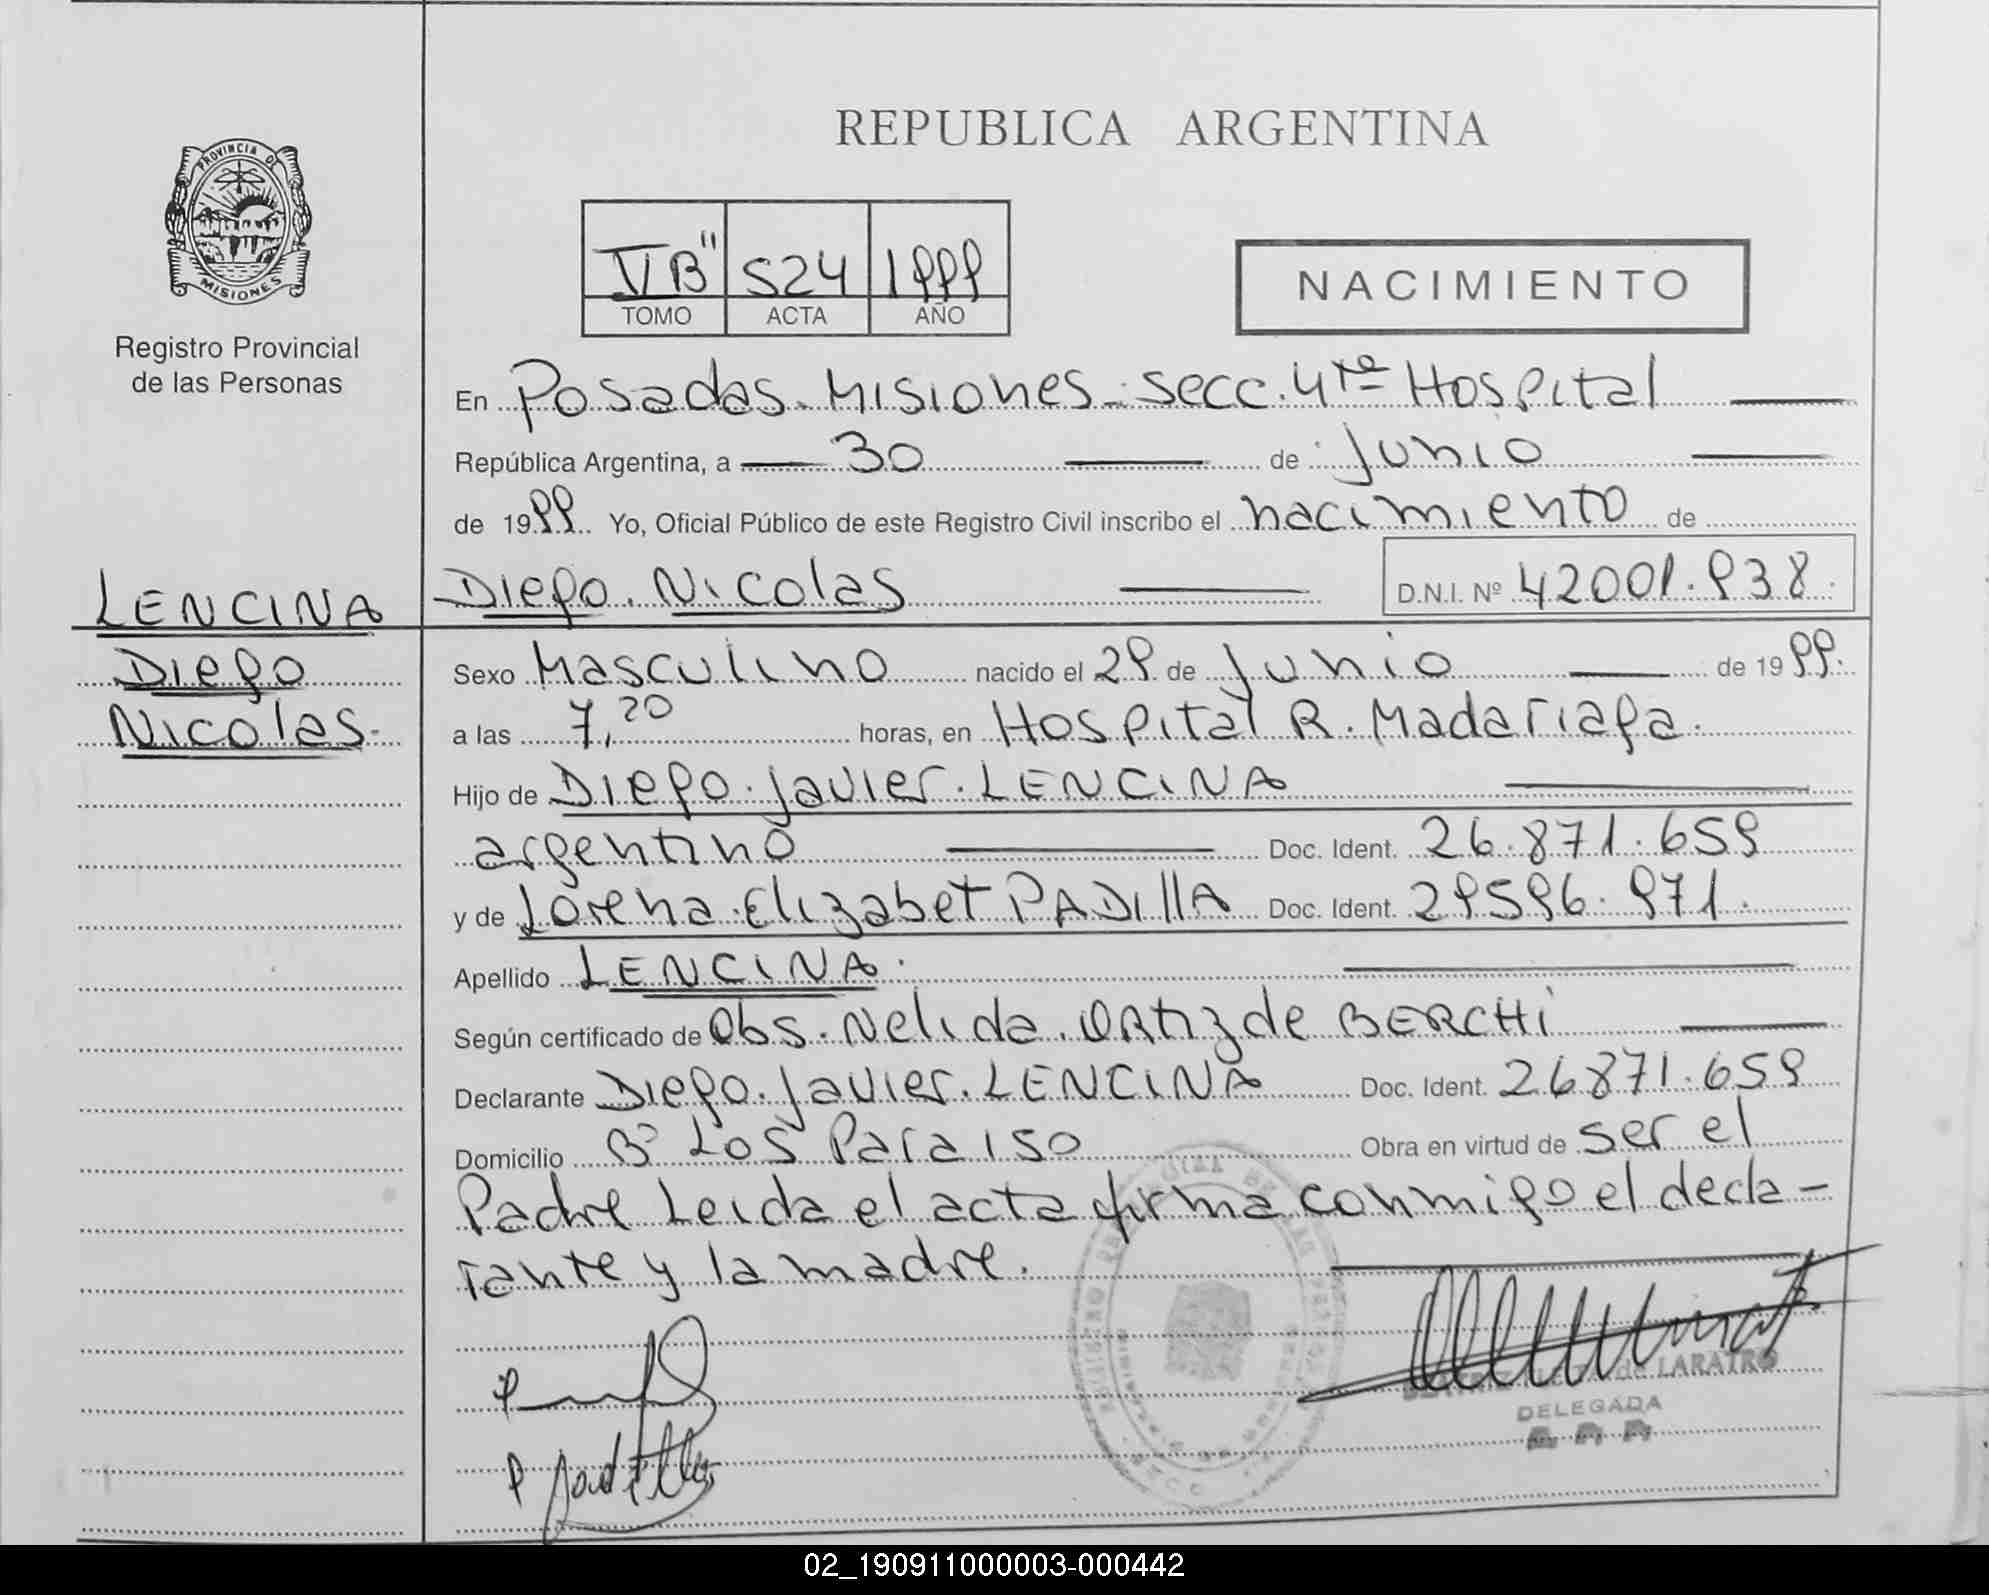 REPUBLICA ARGENTINA
PROVINCIA DE
MISIONES
Registro Provincial
de las Personas
VB" 524 1999
TOMO ACTA AÑO
NACIMIENTO
En Posadas. Misiones - Secc. 4ta Hospital
República Argentina, a 30 de Junio
de 1999 Yo, Oficial Público de este Registro Civil inscribo el nacimiento de
LENCINA
Diego
Nicolas.
Diego. Nicolas D.N.I. Nº 42001.938.
Sexo Masculino nacido el 29 de Junio de 1999.
a las 7,20 horas, en Hospital R. Madariaga.
Hijo de Diego. Javier. LENCINA
argentino Doc. Ident. 26.871.659
y de Lorena. Elizabet PADIllA Doc. Ident. 29596.971.
Apellido LENCINA.
Según certificado de Obs. Nelida. ORtiz de BERCHi
Declarante Diego. Javier. LENCINA Doc. Ident. 26871.659
Domicilio Bº Los Paraiso Obra en virtud de ser el
Padre Leida el acta firma conmigo el decla-
rante y la madre.
de LARATRO
DELEGADA
02_190911000003-000442